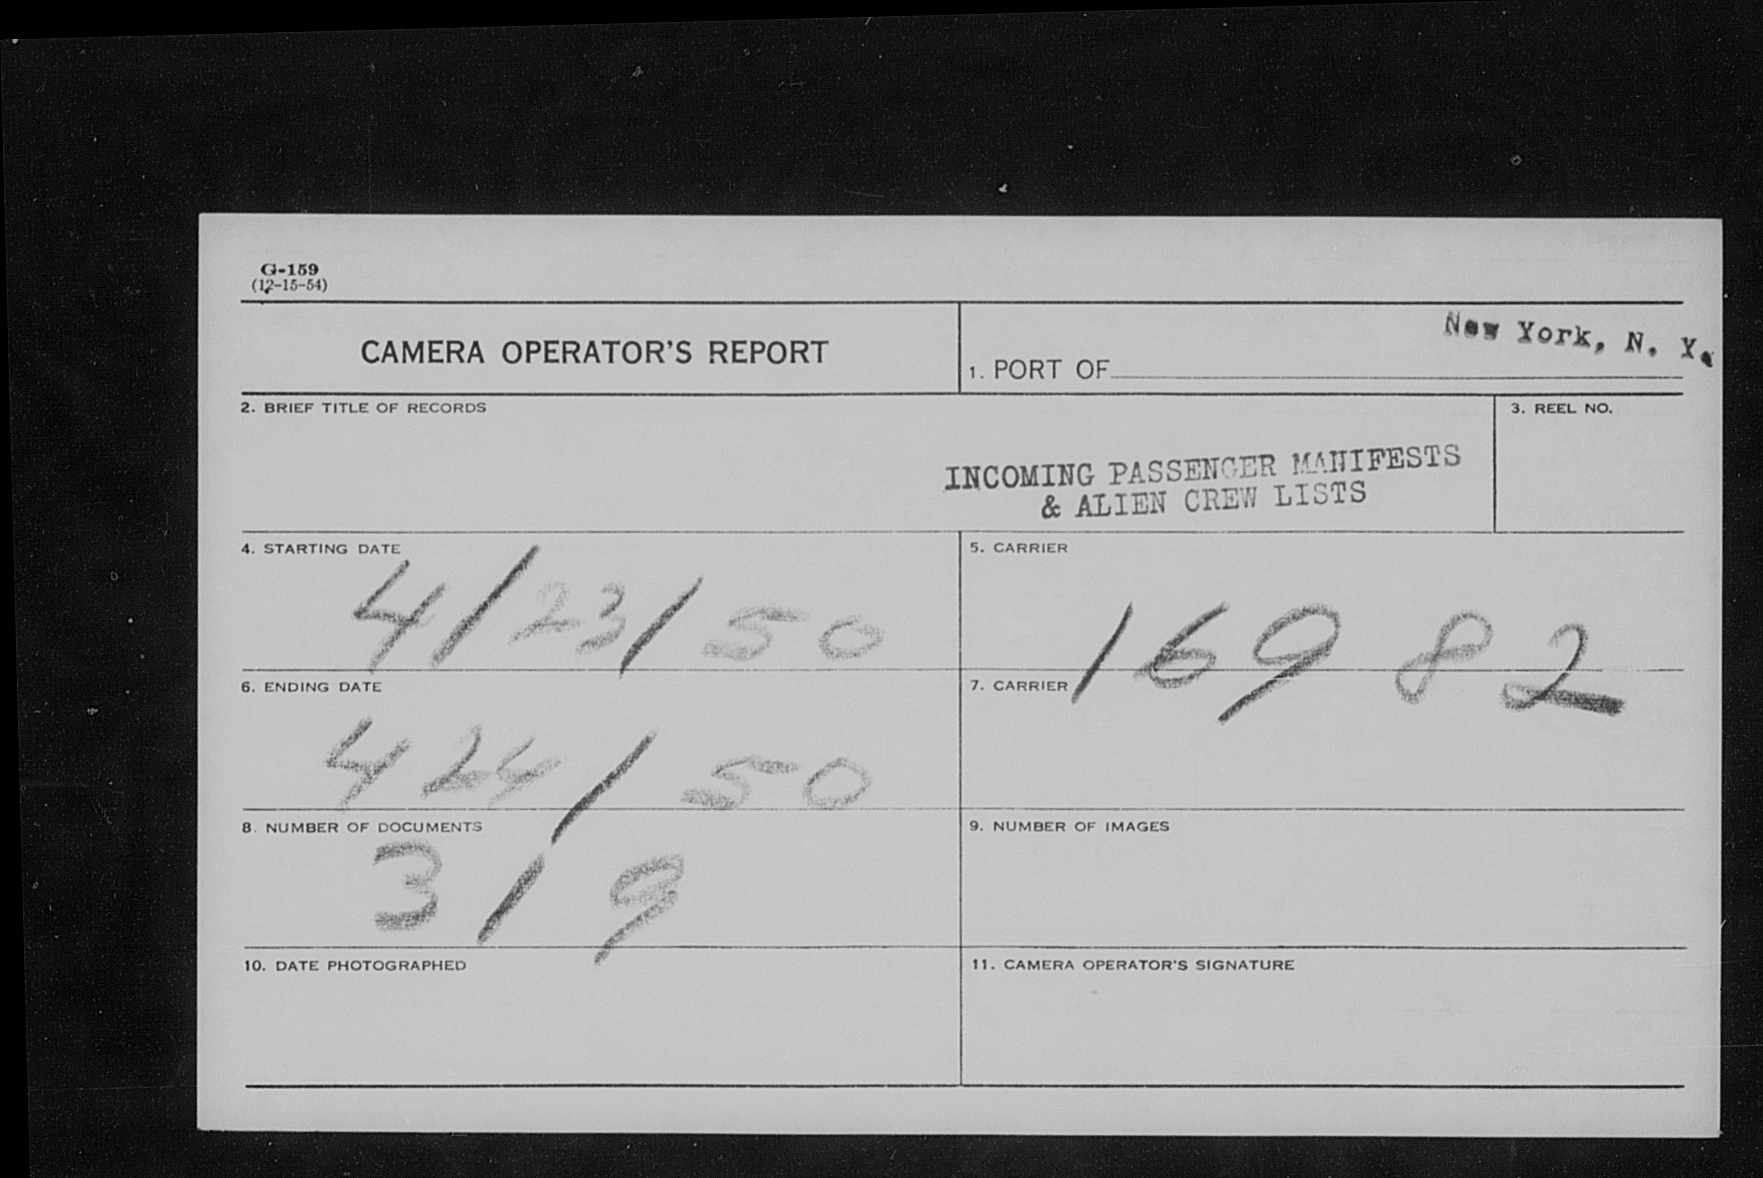 G-159
(12-15-54)
CAMERA OPERATOR'S REPORT
1. PORT OF New York, N. Y.
2. BRIEF TITLE OF RECORDS
INCOMING PASSENGER MANIFESTS
& ALIEN CREW LISTS
3. REEL NO.
4. STARTING DATE
4/23/50
5. CARRIER
16982
6. ENDING DATE
4 24/50
7. CARRIER
8. NUMBER OF DOCUMENTS
319
9. NUMBER OF IMAGES
10. DATE PHOTOGRAPHED
11. CAMERA OPERATOR'S SIGNATURE